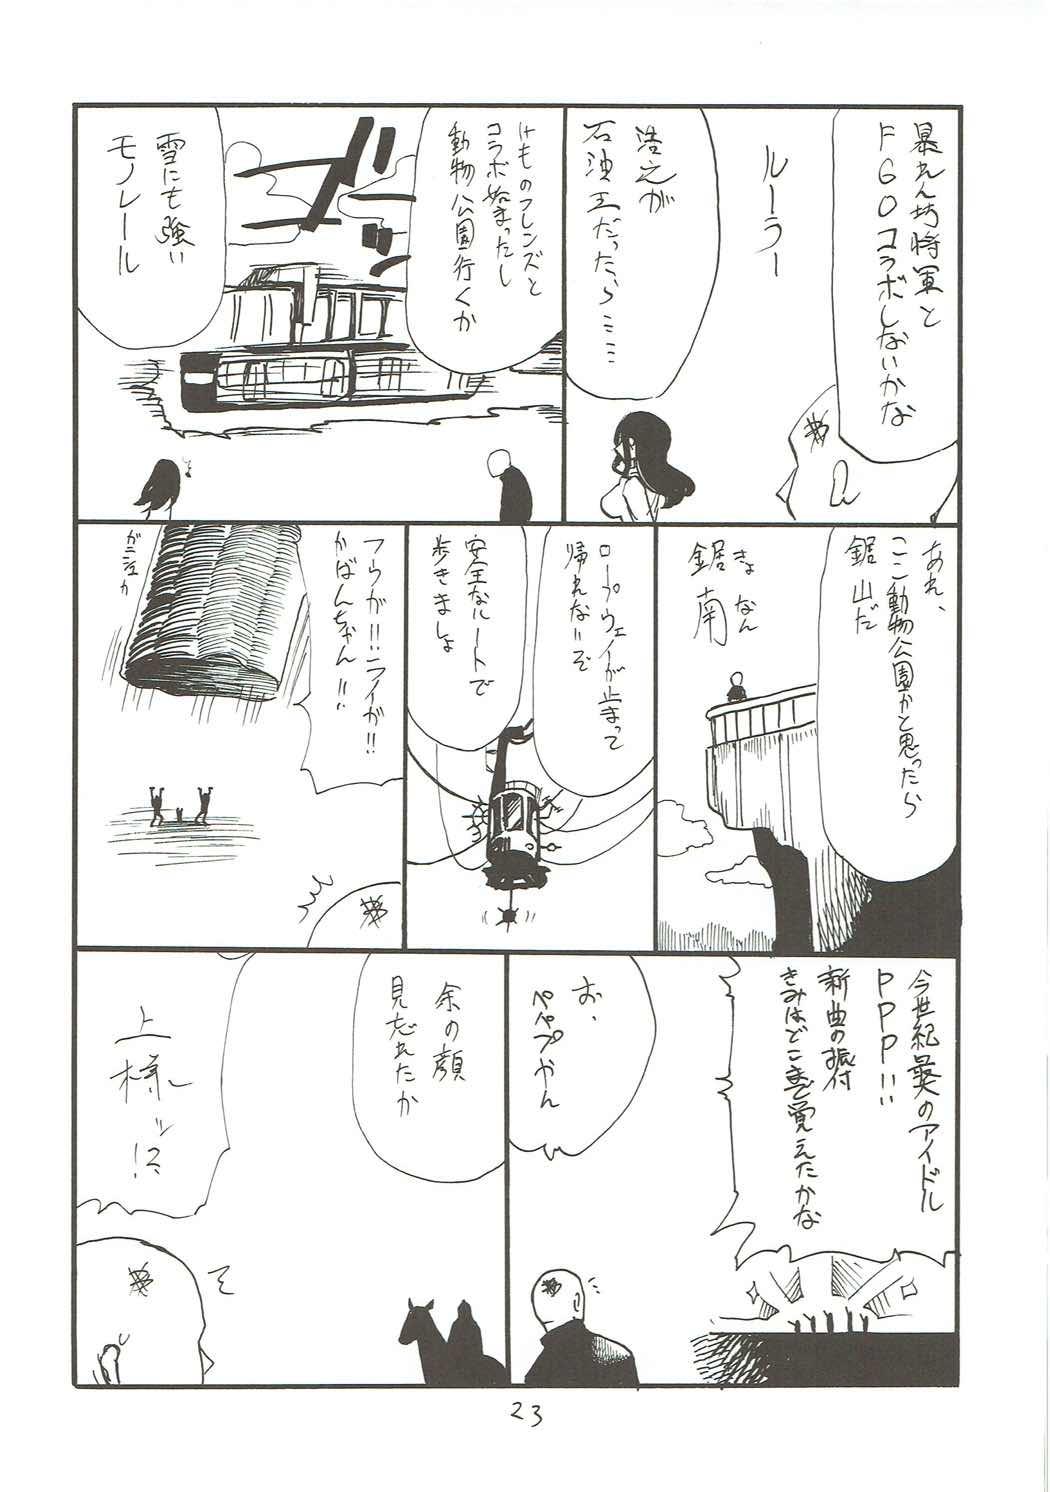 暴れん坊将軍と
FGOコラボしないかな
ルーラー
浩之が
石油王だったら……
けものフレンズと
コラボ始まったし
動物公園行くか
ドドドド
雪にも強い
モノレール
あれ、
ここ動物公園かと思ったら
鋸山だ
きょなん
鋸南
ロープウェイが止まって
帰れないぞ
安全なルートで
歩きましょ
フウが!!ライが!!
かばんちゃん!!
今世紀最大のアイドル
PPP!!
新曲の振付
きみはどこまで覚えたかな
お、
ペパプやん
余の顔
見忘れたか
上様ッ!?
23